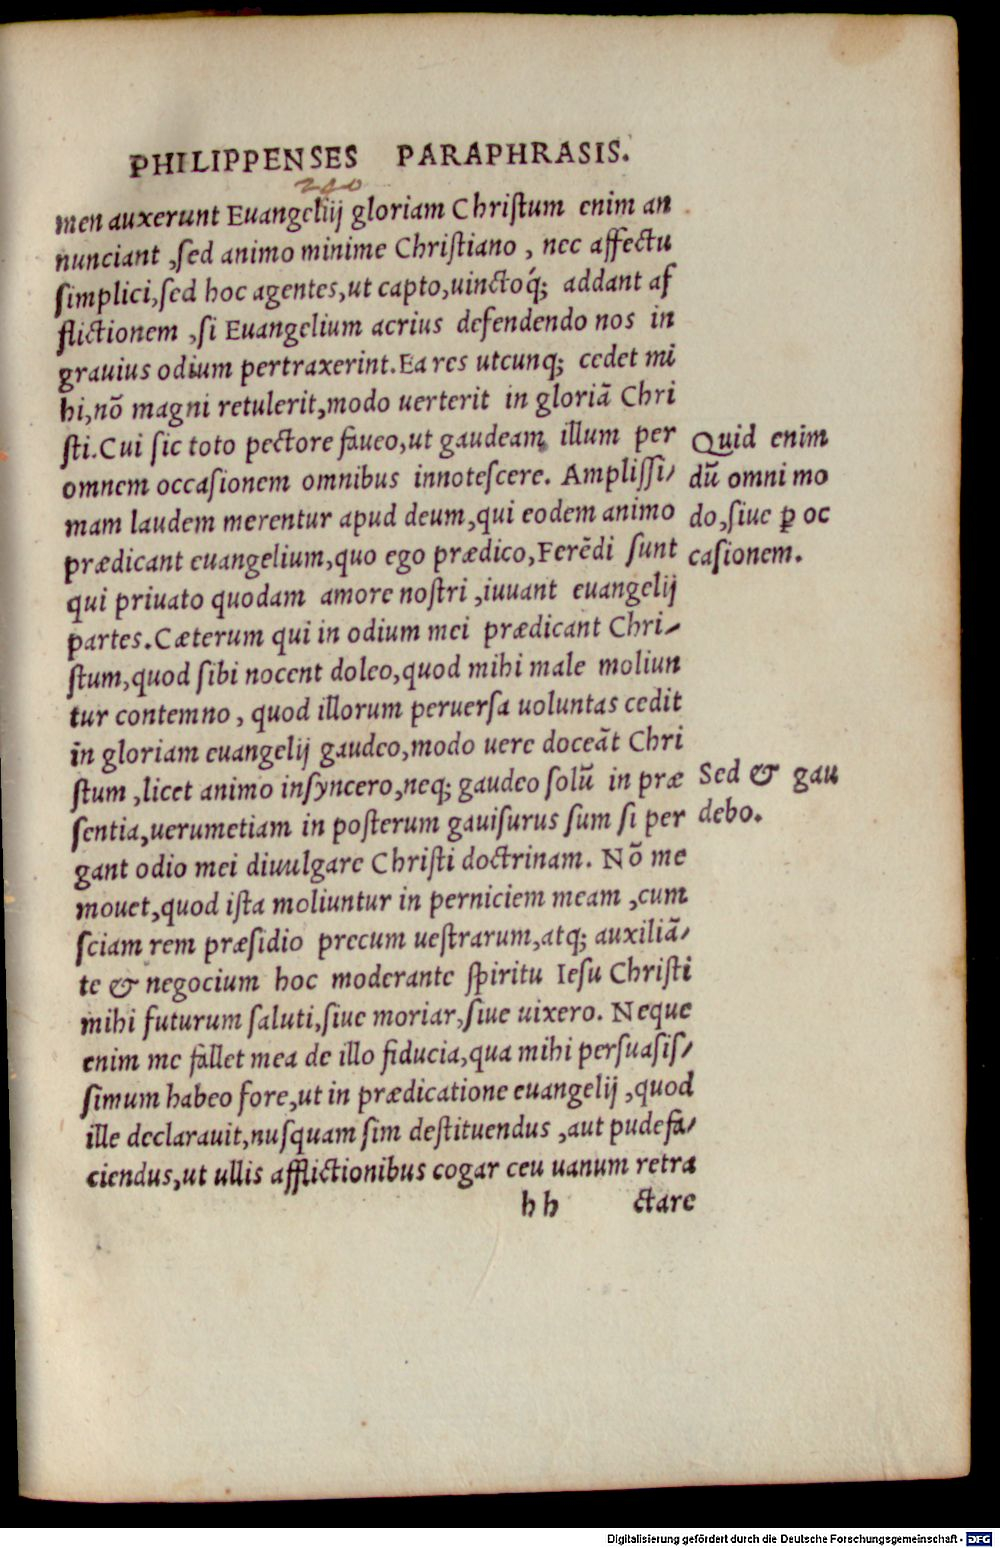 PHILIPPENSES PARAPHRASIS.
240
men auxerunt Euangeliij gloriam Christum enim an
nunciant ,sed animo minime Christiano , nec affectu
simplici,sed hoc agentes,ut capto,uinctoq́; addant af
flictionem ,si Euangelium acrius defendendo nos in
grauius odium pertraxerint.Ea res utcunq; cedet mi
hi,nõ magni retulerit,modo uerterit in gloriã Chri
sti.Cui sic toto pectore faueo,ut gaudeam illum per
omnem occasionem omnibus innotescere. Amplissi/
mam laudem merentur apud deum,qui eodem animo
prædicant euangelium,quo ego prædico,Ferẽdi sunt
qui priuato quodam amore nostri ,iuuant euangelij
partes.Cæterum qui in odium mei prædicant Chri/
stum,quod sibi nocent doleo,quod mihi male moliun
tur contemno, quod illorum peruersa uoluntas cedit
in gloriam euangelij gaudeo,modo uere doceãt Chri
stum ,licet animo insyncero,neq; gaudeo solũ in præ
sentia,uerumetiam in posterum gauisurus sum si per
gant odio mei diuulgare Christi doctrinam. Nõ me
mouet,quod ista moliuntur in perniciem meam ,cum
sciam rem præsidio precum uestrarum,atq; auxiliã/
te & negocium hoc moderante spiritu Iesu Christi
mihi futurum saluti,siue moriar,siue uixero. Neque
enim me fallet mea de illo fiducia,qua mihi persuasis/
simum habeo fore,ut in prædicatione euangelij ,quod
ille declarauit,nusquam sim destituendus ,aut pudefa/
ciendus,ut ullis afflictionibus cogar ceu uanum retra
hh ctare
Quid enim
dũ omni mo
do,siue ꝑ oc
casionem.
Sed & gau
debo.
Digitalisierung gefördert durch die Deutsche Forschungsgemeinschaft - DFG